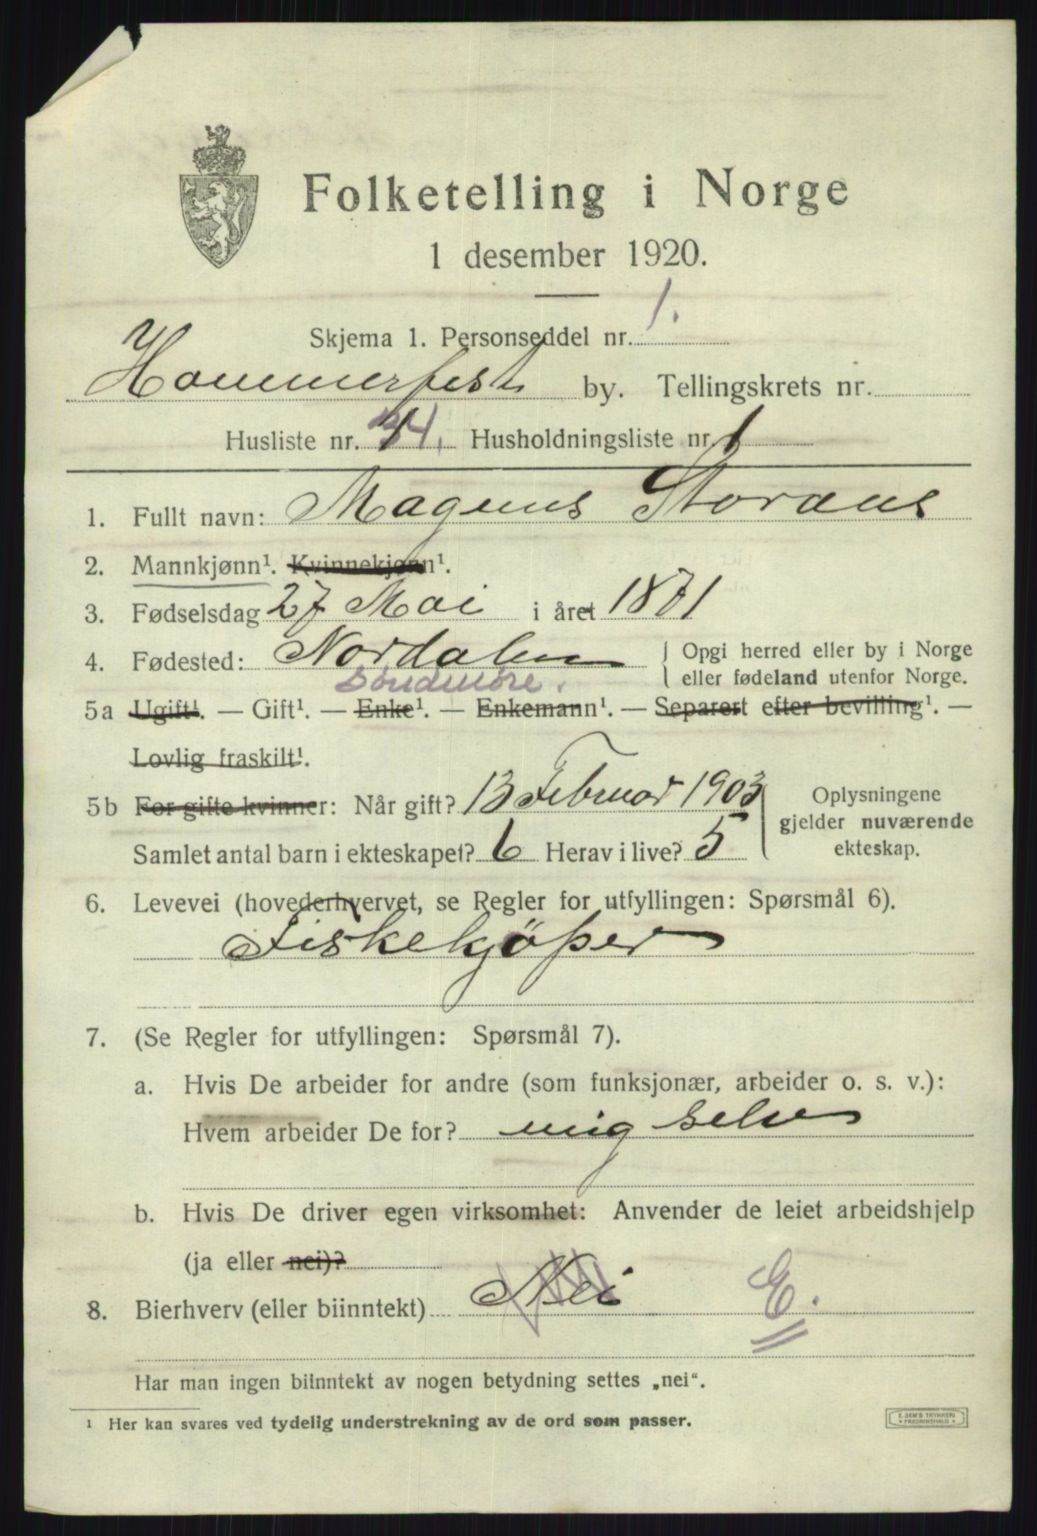 Folketelling i Norge
1 desember 1920.
Skjema 1. Personseddel nr. 1.
Hammerfest by. Tellingskrets nr.
Husliste nr. Husholdningsliste nr. 1
1. Fullt navn: Magnus Storaas
2. Mannkjønn¹. Kvinnekjønn¹.
3. Fødselsdag 27 Mai i året 1871
4. Fødested: Nordalen { Opgi herred eller by i Norge
eller fødeland utenfor Norge.
Söndmöre.
5a Ugift¹. — Gift¹. — Enke¹. — Enkemann¹. — Separert efter bevilling¹. —
Lovlig fraskilt¹.
5b For gifte kvinner: Når gift? 13 Februar 1903 } Oplysningene
gjelder nuværende
Samlet antal barn i ekteskapet? 6 Herav i live? 5 ekteskap.
6. Levevei (hovederhvervet, se Regler for utfyllingen: Spørsmål 6).
Fiskekjöper
7. (Se Regler for utfyllingen: Spørsmål 7).
a. Hvis De arbeider for andre (som funksjonær, arbeider o. s. v.):
Hvem arbeider De for? mig selv
b. Hvis De driver egen virksomhet: Anvender de leiet arbeidshjelp
(ja eller nei)?
8. Bierhverv (eller biinntekt) Nei E.
Har man ingen biinntekt av nogen betydning settes „nei“.
¹ Her kan svares ved tydelig understrekning av de ord som passer.
E. SEM'S TRYKKERI
FREDRIKSHALD